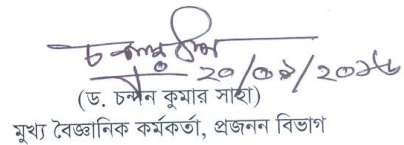 (ড. চন্দন কুমার সাহা)
মুখ্য বৈজ্ঞানিক কর্মকর্তা, প্রজনন বিভাগ